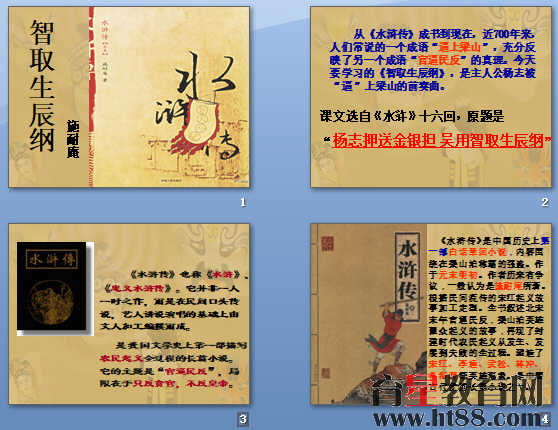 智取生辰纲
施耐庵
水浒传
水浒传
1
从《水浒传》成书到现在，近700年来，
人们常说的一个成语“逼上梁山”，充分反
映了另一个成语“官逼民反”的真理。今天
要学习的《智取生辰纲》，是主人公杨志被
“逼”上梁山的前奏曲。
课文选自《水浒》十六回，原题是
“杨志押送金银担 吴用智取生辰纲”
2
水浒傳
《水浒传》也称《水浒》、
《忠义水浒传》。它并非一人
一时之作，而是在民间口头传
说、艺人讲说演唱的基础上由
文人加工编撰而成。
是我国文学史上第一部描写
农民起义全过程的长篇小说。
它的主题是“官逼民反”，局
限在于只反贪官，不反皇帝。
3
水浒传
《水浒传》是中国历史上第
一部白话章回小说，内容围
绕在梁山泊落草的强盗。作
于元末明初。作者历来有争
议，一般认为是施耐庵所著。
根据民间流传的宋江起义故
事加工史料。全书叙述北宋
末年官逼民反，梁山泊英雄
聚众起义的故事，再现了封
建时代农民起义从发生、发
展到失败的全过程。塑造了
宋江、李逵、武松、林冲、
育星教育网
www.ht88.com
4